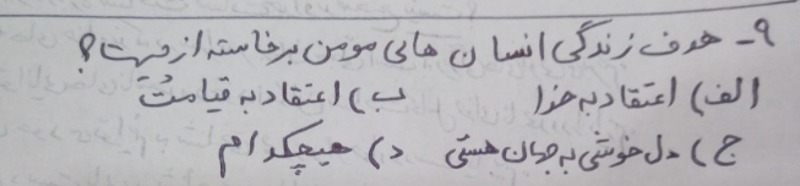 ۹- هدف زندگی انسان های مومن برخاسته از چیست؟
الف) اعتقاد به خدا ب) اعتقاد به قیامت
ج) دل خوشی به جهان هستی د) هیچکدام